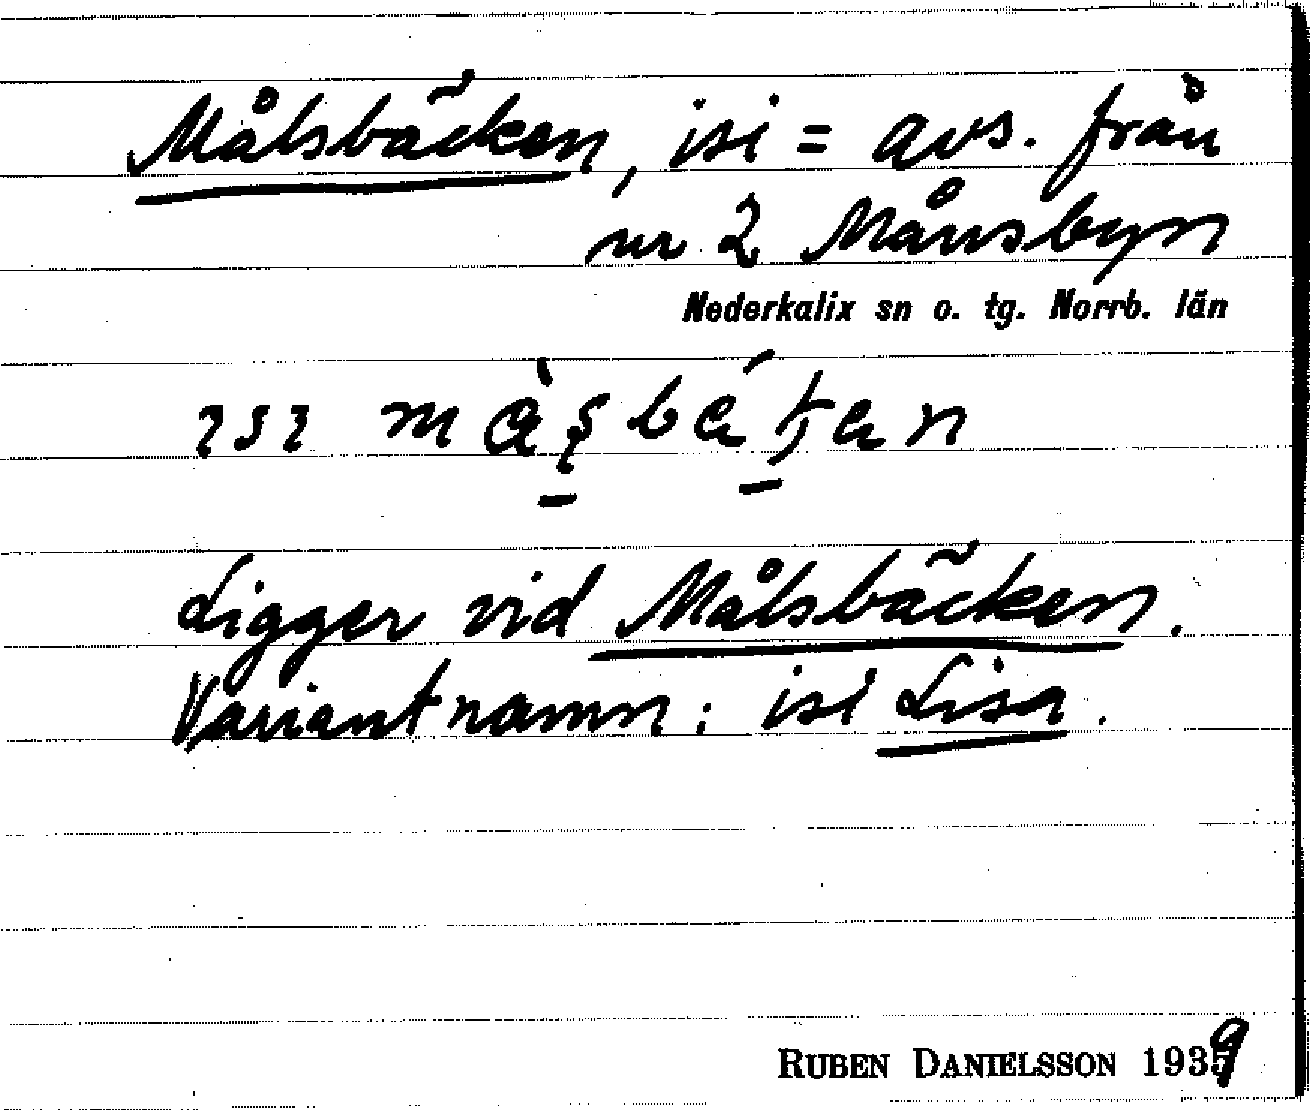 Målsbäcken, isi = avs. från
nr 2 Månsbyn
Nederkalix sn o. tg. Norrb. län
Ligger vid Målsbäcken.
Variantnamn: isi Lisa.
RUBEN DANIELSSON 1939